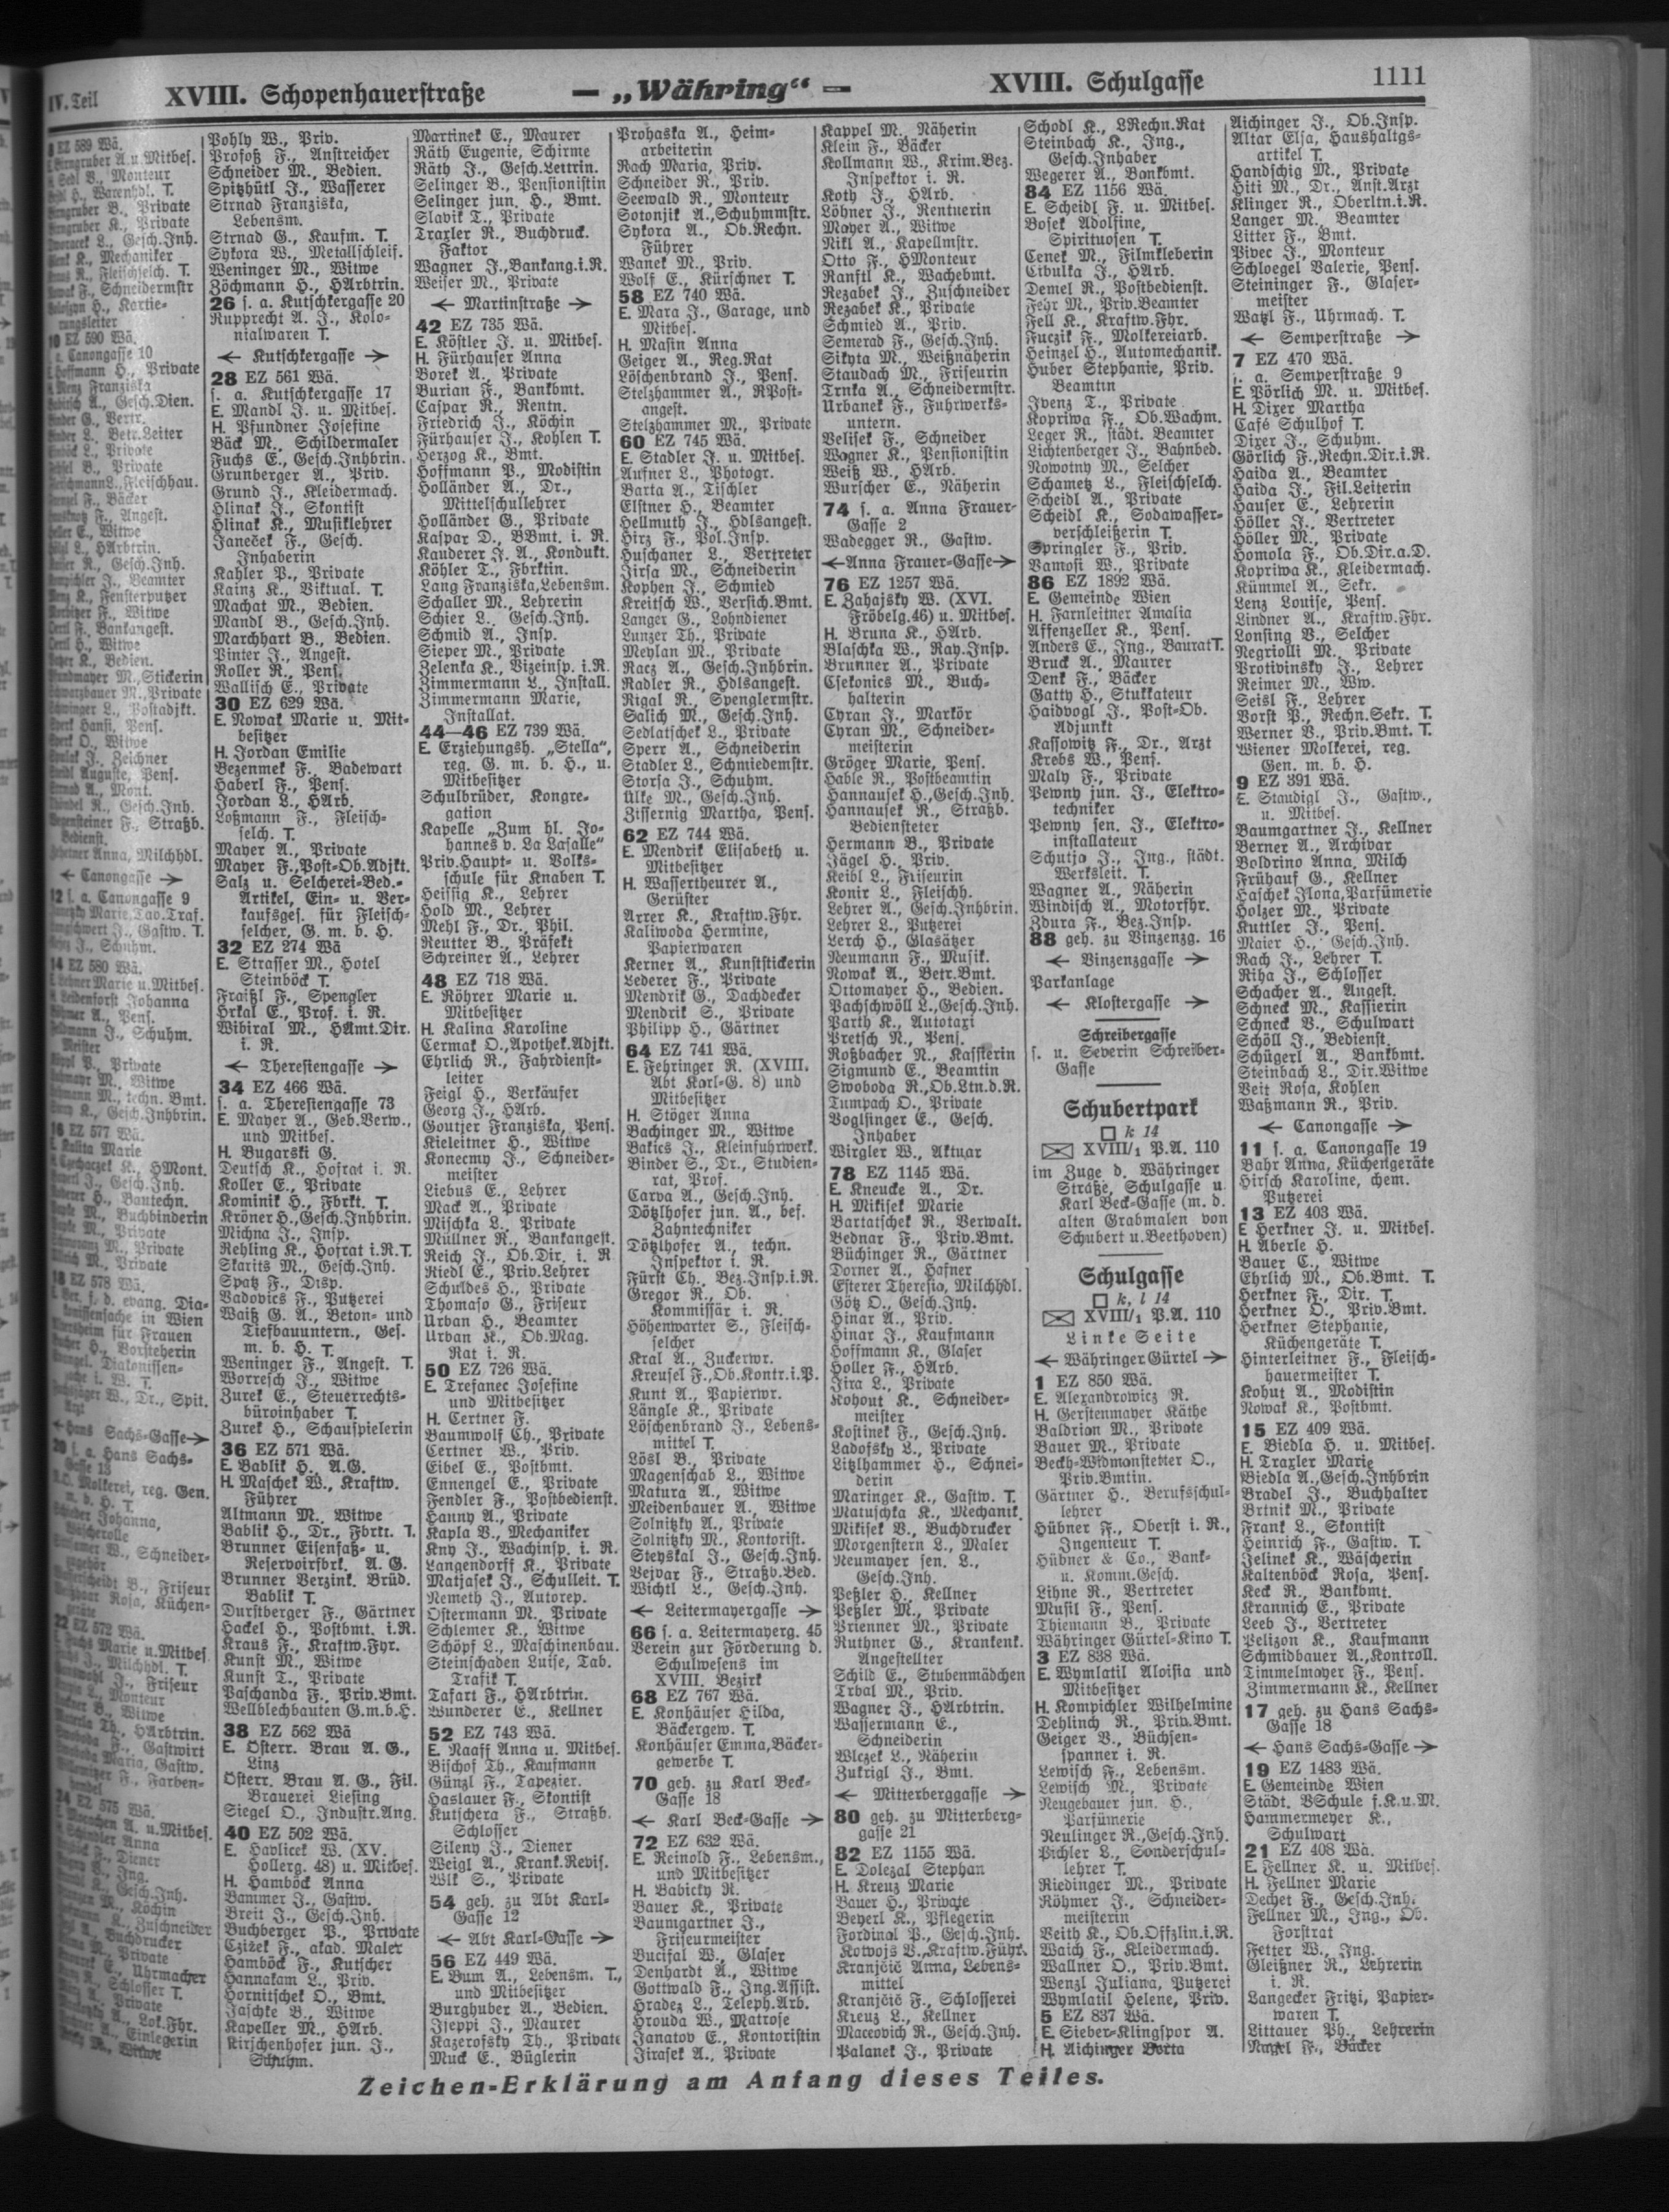 IV. Teil
XVIII. Schopenhauerstraße
— „Währing“ —
XVIII. Schulgasse
1111
8 EZ 589 Wä.
10 EZ 590 Wä.
s. a. Canongasse 10
← Canongasse →
12 s. a. Canongasse 9
14 EZ 580 Wä.
16 EZ 577 Wä.
18 EZ 578 Wä.
← Hans Sachs-Gasse →
20 s. a. Hans Sachs-
Gasse 13
22 EZ 572 Wä.
24 EZ 575 Wä.
Pohly W., Priv.
Profoß F., Anstreicher
Schneider M., Bedien.
Spitzhütl J., Wasserer
Strnad Franziska,
Lebensm.
Strnad G., Kaufm. T.
Sykora W., Metallschleif.
Weninger M., Witwe
Zöchmann H., HArbtrin.
26 s. a. Kutschkergasse 20
Rupprecht A. J., Kolo-
nialwaren T.
← Kutschkergasse →
28 EZ 561 Wä.
s. a. Kutschkergasse 17
E. Mandl J. u. Mitbes.
H. Pfundner Josefine
Bäck M., Schildermaler
Fuchs E., Gesch.Inhbrin.
Grunberger A., Priv.
Grund J., Kleidermach.
Hlinak J., Skontist
Hlinak K., Musiklehrer
Janeček F., Gesch.
Inhaberin
Kahler P., Private
Kainz K., Viktual. T.
Machat M., Bedien.
Mandl B., Gesch.Inh.
Marchhart B., Bedien.
Pinter J., Angest.
Roller R., Pens.
Wallisch E., Private
30 EZ 629 Wä.
E. Nowak Marie u. Mit-
besitzer
H. Jordan Emilie
Bezenmek F., Badewart
Haberl F., Pens.
Jordan L., HArb.
Loßmann F., Fleisch-
selch. T.
Mayer A., Private
Mayer F.,Post-Ob.Adjkt.
Salz u. Selcherei-Bed.-
Artikel, Ein- u. Ver-
kaufsges. für Fleisch-
selcher, G. m. b. H.
32 EZ 274 Wä
E. Strasser M., Hotel
Steinböck T.
Fraißl F., Spengler
Hrkal E., Prof. i. R.
Wibiral M., HAmt.Dir.
i. R.
← Theresiengasse →
34 EZ 466 Wä.
s. a. Theresiengasse 73
E. Mayer A., Geb.Verw.,
und Mitbes.
H. Bugarski G.
Deutsch K., Hofrat i. R.
Koller E., Private
Kominik H., Fbrkt. T.
Kröner H.,Gesch.Inhbrin.
Michna J., Insp.
Rehling K., Hofrat i.R.T.
Skarits M., Gesch.Inh.
Spatz F., Disp.
Vadovics F., Putzerei
Waiß G. A., Beton- und
Tiefbauuntern., Ges.
m. b. H. T.
Weninger F., Angest. T.
Worresch J., Witwe
Zurek E., Steuerrechts-
büroinhaber T.
Zurek H., Schauspielerin
36 EZ 571 Wä.
E. Bablik H. A.G.
H. Maschek W., Kraftw.
Führer
Altmann M., Witwe
Bablik H., Dr., Fbrkt. T.
Brunner Eisenfaß- u.
Reservoirfbrk. A. G.
Brunner Verzink. Brüd.
Bablik T.
Durstberger F., Gärtner
Hackel H., Postbmt. i.R.
Kraus F., Kraftw.Fhr.
Kunst M., Witwe
Kunst T., Private
Paschanda F., Priv.Bmt.
Wellblechbauten G.m.b.H.
38 EZ 562 Wä
E. Österr. Brau A. G.,
Linz
Österr. Brau A. G., Fil.
Brauerei Liesing
Siegel O., Industr.Ang.
40 EZ 502 Wä.
E. Havlicek W. (XV.
Hollerg. 48) u. Mitbes.
H. Hamböck Anna
Bammer J., Gastw.
Breit J., Gesch.Inh.
Buchberger P., Private
Czižek F., akad. Maler
Hamböck F., Kutscher
Hannakam L., Priv.
Hornitschek O., Bmt.
Jaschke B., Witwe
Kapeller M., HArb.
Kirschenhofer jun. J.,
Schuhm.
Martinek E., Maurer
Räth Eugenie, Schirme
Räth J., Gesch.Leitrin.
Selinger B., Pensionistin
Selinger jun. H., Bmt.
Slavik T., Private
Traxler R., Buchdruck.
Faktor
Wagner J.,Bankang.i.R.
Weiser M., Private
← Martinstraße →
42 EZ 735 Wä.
E. Köstler J. u. Mitbes.
H. Fürhauser Anna
Borek A., Private
Burian F., Bankbmt.
Caspar R., Rentn.
Friedrich J., Köchin
Fürhauser J., Kohlen T.
Herzog K., Bmt.
Hoffmann P., Modistin
Holländer A., Dr.,
Mittelschullehrer
Holländer G., Private
Kaspar D., BBmt. i. R.
Kauderer J. A., Kondukt.
Köhler T., Fbrktin.
Lang Franziska,Lebensm.
Schaller M., Lehrerin
Schier L., Gesch.Inh.
Schmid A., Insp.
Sieper M., Private
Zelenka K., Vizeinsp. i.R.
Zimmermann L., Install.
Zimmermann Marie,
Installat.
44—46 EZ 739 Wä.
E. Erziehungsh. „Stella“,
reg. G. m. b. H., u.
Mitbesitzer
Schulbrüder, Kongre-
gation
Kapelle „Zum hl. Jo-
hannes v. La Lasalle“
Priv.Haupt- u. Volks-
schule für Knaben T.
Heissig K., Lehrer
Hold M., Lehrer
Mehl F., Dr., Phil.
Reutter B., Präfekt
Schreiner A., Lehrer
48 EZ 718 Wä.
E. Röhrer Marie u.
Mitbesitzer
H. Kalina Karoline
Cermak O.,Apothek.Adjkt.
Ehrlich R., Fahrdienst-
leiter
Feigl H., Verkäufer
Georg J., HArb.
Goutjer Franziska, Pens.
Kieleitner H., Witwe
Konecmy J., Schneider-
meister
Liebus E., Lehrer
Mack A., Private
Mischka L., Private
Müllner R., Bankangest.
Reich J., Ob.Dir. i. R
Riedl E., Priv.Lehrer
Schuldes H., Private
Thomaso G., Friseur
Urban H., Beamter
Urban K., Ob.Mag.
Rat i. R.
50 EZ 726 Wä.
E. Trefanec Josefine
und Mitbesitzer
H. Certner F.
Baumwolf Ch., Private
Certner W., Priv.
Eibel E., Postbmt.
Ennengel E., Private
Fendler F., Postbedienst.
Hanny A., Private
Kapla B., Mechaniker
Kny J., Wachinsp. i. R.
Langendorff K., Private
Matjasek J., Schulleit. T.
Nemeth J., Autorep.
Ostermann M., Private
Schlemer K., Witwe
Schöpf L., Maschinenbau.
Steinschaden Luise, Tab.
Trafik T.
Tasart F., HArbtrin.
Wunderer E., Kellner
52 EZ 743 Wä.
E. Naaff Anna u. Mitbes.
Bischof Th., Kaufmann
Günzl F., Tapezier.
Haslauer F., Skontist
Kutschera F., Straßb.
Schlosser
Sileny J., Diener
Weigl A., Krank.Revis.
Wlk S., Private
54 geh. zu Abt Karl-
Gasse 12
← Abt Karl-Gasse →
56 EZ 449 Wä.
E. Bum A., Lebensm. T.,
und Mitbesitzer
Burghuber A., Bedien.
Jseppi J., Maurer
Kazerofsky Th., Private
Muck E., Büglerin
Prohaska A., Heim-
arbeiterin
Rach Maria, Priv.
Schneider R., Priv.
Seewald R., Monteur
Sotonjik A.,Schuhmmstr.
Sykora A., Ob.Rechn.
Führer
Wanek M., Priv.
Wolf E., Kürschner T.
58 EZ 740 Wä.
E. Mara J., Garage, und
Mitbes.
H. Masin Anna
Geiger A., Reg.Rat
Löschenbrand J., Pens.
Stelzhammer A., RPost-
angest.
Stelzhammer M., Private
60 EZ 745 Wä.
E. Stadler J. u. Mitbes.
Aufner L., Photogr.
Barta A., Tischler
Elstner H., Beamter
Hellmuth J., Hdlsangest.
Hirz F., Pol.Insp.
Huschaner L., Vertreter
Jirsa M., Schneiderin
Kophen J., Schmied
Kreitsch W., Versich.Bmt.
Langer G., Lohndiener
Lunzer Th., Private
Meylan M., Private
Racz A., Gesch.Inhbrin.
Radler R., Hdlsangest.
Rigal R., Spenglermstr.
Salich M., Gesch.Inh.
Sedlatschek L., Private
Sperr A., Schneiderin
Stadler L., Schmiedemstr.
Storsa J., Schuhm.
Ülke M., Gesch.Inh.
Ziffernig Martha, Pens.
62 EZ 744 Wä.
E. Mendrik Elisabeth u.
Mitbesitzer
H. Wassertheurer A.,
Gerüster
Arrer K., Kraftw.Fhr.
Kaliwoda Hermine,
Papierwaren
Kerner A., Kunststickerin
Lederer F., Private
Mendrik G., Dachdecker
Mendrik S., Private
Philipp H., Gärtner
64 EZ 741 Wä.
E. Fehringer R. (XVIII.
Abt Karl-G. 8) und
Mitbesitzer
H. Stöger Anna
Bachinger M., Witwe
Bakics J., Kleinfuhrwerk.
Binder S., Dr., Studien-
rat, Prof.
Carva A., Gesch.Inh.
Dötzlhofer jun. A., bef.
Zahntechniker
Dötzlhofer A., techn.
Inspektor i. R.
Fürst Ch., Bez.Insp.i.R.
Gregor R., Ob.
Kommissär i. R.
Höhenwarter S., Fleisch-
selcher
Kral A., Zuckerwr.
Kreusel F.,Ob.Kontr.i.P.
Kunt A., Papierwr.
Längle K., Private
Löschenbrand J., Lebens-
mittel T.
Lösl B., Private
Magenschab L., Witwe
Matura A., Witwe
Meidenbauer A., Witwe
Solnitzky A., Private
Solnitzky M., Kontorist.
Steyskal J., Gesch.Inh.
Vejvar F., Straßb.Bed.
Wichtl L., Gesch.Inh.
← Leitermayergasse →
66 s. a. Leitermayerg. 45
Verein zur Förderung d.
Schulwesens im
XVIII. Bezirk
68 EZ 767 Wä.
E. Konhäuser Hilda,
Bäckergew. T.
Konhäuser Emma,Bäcker-
gewerbe T.
70 geh. zu Karl Beck-
Gasse 18
← Karl Beck-Gasse →
72 EZ 632 Wä.
E. Reinold F., Lebensm.,
und Mitbesitzer
H. Babicky R.
Bauer K., Private
Baumgartner J.,
Friseurmeister
Bucifal W., Glaser
Denhardt A., Witwe
Gottwald F., Ing.Assist.
Hradez L., Teleph.Arb.
Hrouda W., Matrose
Janatov E., Kontoristin
Jirasek A., Private
Kappel M., Näherin
Klein F., Bäcker
Kollmann W., Krim.Bez.
Inspektor i. R.
Koth J., HArb.
Löhner J., Rentnerin
Mayer A., Witwe
Nikl A., Kapellmstr.
Otto F., HMonteur
Ranftl K., Wachebmt.
Rezabek J., Zuschneider
Rezabek K., Private
Schmied A., Priv.
Semerad F., Gesch.Inh.
Sikyta M., Weißnäherin
Staudach M., Friseurin
Trnka A., Schneidermstr.
Urbanek F., Fuhrwerks-
untern.
Velisek F., Schneider
Wagner K., Pensionistin
Weiß W., HArb.
Wurscher E., Näherin
74 s. a. Anna Frauer-
Gasse 2
Wadegger R., Gastw.
← Anna Frauer-Gasse →
76 EZ 1257 Wä.
E. Zahajsky W. (XVI.
Fröbelg.46) u. Mitbes.
H. Bruna K., HArb.
Blaschka W., Ray.Insp.
Brunner A., Private
Csekonics M., Buch-
halterin
Cyran J., Markör
Cyran M., Schneider-
meisterin
Gröger Marie, Pens.
Hable R., Postbeamtin
Hannausek H.,Gesch.Inh.
Hannausek R., Straßb.
Bediensteter
Hermann B., Private
Jägel H., Priv.
Keibl L., Friseurin
Konir L., Fleischh.
Lehrer A., Gesch.Inhbrin.
Lehrer L., Putzerei
Lerch H., Glasätzer
Neumann F., Musik.
Nowak A., Betr.Bmt.
Ottomayer H., Bedien.
Pachschwöll L.,Gesch.Inh.
Parth K., Autotaxi
Pretsch N., Pens.
Roßbacher N., Kassierin
Sigmund E., Beamtin
Swoboda R.,Ob.Ltn.d.R.
Tumpach O., Private
Voglsinger E., Gesch.
Inhaber
Wirgler W., Aktuar
78 EZ 1145 Wä.
E. Kneucke A., Dr.
H. Mikisek Marie
Bartatschek R., Verwalt.
Bednar F., Priv.Bmt.
Büchinger R., Gärtner
Dorner A., Hafner
Esterer Theresia, Milchhdl.
Götz O., Gesch.Inh.
Hinar A., Priv.
Hinar J., Kaufmann
Hoffmann K., Glaser
Holler F., HArb.
Jira L., Private
Kohout K., Schneider-
meister
Kostinek F., Gesch.Inh.
Ladofsky L., Private
Litzlhammer H., Schnei-
derin
Maringer K., Gastw. T.
Matuschka K., Mechanik.
Mikisek B., Buchdrucker
Morgenstern L., Maler
Neumayer sen. L.,
Gesch.Inh.
Peßler H., Kellner
Peßler M., Private
Prienner M., Private
Ruthner G., Krankenk.
Angestellter
Schild E., Stubenmädchen
Trbal M., Priv.
Wagner J., HArbtrin.
Wassermann E.,
Schneiderin
Wlczek L., Näherin
Zukrigl J., Bmt.
← Mitterberggasse →
80 geh. zu Mitterberg-
gasse 21
82 EZ 1155 Wä.
E. Dolezal Stephan
H. Kreuz Marie
Bauer H., Private
Beyerl K., Pflegerin
Fordinal P., Gesch.Inh.
Kotwojs V.,Kraftw.Führ.
Kranjčič Anna, Lebens-
mittel
Kranjčič F., Schlosserei
Kreuz L., Kellner
Maceovich R., Gesch.Inh.
Palanek J., Private
Schodl K., LRechn.Rat
Steinbach K., Ing.,
Gesch.Inhaber
Wegerer A., Bankbmt.
84 EZ 1156 Wä.
E. Scheidl F. u. Mitbes.
Bosek Adolfine,
Spirituosen T.
Cenek M., Filmkleberin
Cibulka J., HArb.
Demel R., Postbedienst.
Fehr M., Priv.Beamter
Fell K., Kraftw.Fhr.
Fuczik F., Molkereiarb.
Heinzel H., Automechanik.
Huber Stephanie, Priv.
Beamtin
Ivenz T., Private
Kopriwa F., Ob.Wachm.
Leger R., städt. Beamter
Lichtenberger J., Bahnbed.
Nowotny M., Selcher
Schametz L., Fleischselch.
Scheidl A., Private
Scheidl K., Sodawasser-
verschleißerin T.
Springler F., Priv.
Vamosi W., Private
86 EZ 1892 Wä.
E. Gemeinde Wien
H. Farnleitner Amalia
Affenzeller K., Pens.
Anders E., Ing., Baurat T.
Bruck A., Maurer
Denk F., Bäcker
Gatty H., Stukkateur
Haidvogl J., Post-Ob.
Adjunkt
Kassowitz F., Dr., Arzt
Krebs W., Pens.
Maly F., Private
Pewny jun. J., Elektro-
techniker
Pewny sen. J., Elektro-
installateur
Schutja J., Ing., städt.
Werksleit. T.
Wagner A., Näherin
Windisch A., Motorfhr.
Zdura F., Bez.Insp.
88 geh. zu Vinzenzg. 16
← Vinzenzgasse →
Parkanlage
← Klostergasse →
Schreibergasse
s. u. Severin Schreiber-
Gasse
Schubertpark
□ k 14
XVIII/1 P.A. 110
im Zuge d. Währinger
Straße, Schulgasse u.
Karl Beck-Gasse (m. d.
alten Grabmalen von
Schubert u.Beethoven)
Schulgasse
□ k, l 14
XVIII/1 P.A. 110
Linke Seite
← Währinger Gürtel →
1 EZ 850 Wä.
E. Alexandrowicz R.
H. Gerstenmayer Käthe
Baldrian M., Private
Bauer M., Private
Beckh-Widmanstetter O.,
Priv.Bmtin.
Gärtner H., Berufsschul-
lehrer
Hübner F., Oberst i. R.,
Ingenieur T.
Hübner & Co., Bank-
u. Komm.Gesch.
Lihne R., Vertreter
Musil F., Pens.
Thiemann B., Private
Währinger Gürtel-Kino T.
3 EZ 838 Wä.
E. Wymlatil Aloisia und
Mitbesitzer
H. Kompichler Wilhelmine
Dehlinch R., Priv.Bmt.
Geiger B., Büchsen-
spanner i. R.
Lewisch F., Lebensm.
Lewisch M., Private
Neugebauer jun. H.,
Parfümerie
Neulinger R.,Gesch.Inh.
Pichler L., Sonderschul-
lehrer T.
Riedinger M., Private
Röhmer J., Schneider-
meisterin
Veith K., Ob.Offzlin.i.R.
Waich F., Kleidermach.
Wallner O., Priv.Bmt.
Wenzl Juliana, Putzerei
Wymlatil Helene, Priv.
5 EZ 837 Wä.
E. Sieber-Klingspor A.
H. Aichinger Berta
Aichinger J., Ob.Insp.
Altar Elsa, Haushaltgs-
artikel T.
Handschig M., Private
Hiti M., Dr., Anst.Arzt
Klinger R., Oberltn.i.R.
Langer M., Beamter
Litter F., Bmt.
Pivec J., Monteur
Schloegel Valerie, Pens.
Steininger F., Glaser-
meister
Watzl F., Uhrmach. T.
← Semperstraße →
7 EZ 470 Wä.
s. a. Semperstraße 9
E. Pörlich M. u. Mitbes.
H. Dixer Martha
Café Schulhof T.
Dixer J., Schuhm.
Görlich F.,Rechn.Dir.i.R.
Haida A., Beamter
Haida J., Fil.Leiterin
Hauser E., Lehrerin
Höller J., Vertreter
Höller M., Private
Homola F., Ob.Dir.a.D.
Kopriwa K., Kleidermach.
Kümmel A., Sekr.
Lenz Louise, Pens.
Lindner A., Kraftw.Fhr.
Lonsing B., Selcher
Negriolli M., Private
Protivinsky J., Lehrer
Reimer M., Ww.
Seisl F., Lehrer
Vorst P., Rechn.Sekr. T.
Werner B., Priv.Bmt. T.
Wiener Molkerei, reg.
Gen. m. b. H.
9 EZ 391 Wä.
E. Staudigl J., Gastw.,
u. Mitbes.
Baumgartner J., Kellner
Berner A., Archivar
Boldrino Anna, Milch
Frühauf G., Kellner
Haschek Ilona,Parfümerie
Holzer M., Private
Kuttler J., Pens.
Maier H., Gesch.Inh.
Rach J., Lehrer T.
Riha J., Schlosser
Schacher A., Angest.
Schneck M., Kassierin
Schneck B., Schulwart
Schöll J., Bedienst.
Schügerl A., Bankbmt.
Steinbach L., Dir.Witwe
Veit Rosa, Kohlen
Waßmann R., Priv.
← Canongasse →
11 s. a. Canongasse 19
Bahr Anna, Küchengeräte
Hirsch Karoline, chem.
Putzerei
13 EZ 403 Wä.
E Herkner J. u. Mitbes.
H. Aberle H.
Bauer C., Witwe
Ehrlich M., Ob.Bmt. T.
Herkner F., Dir. T.
Herkner O., Priv.Bmt.
Herkner Stephanie,
Küchengeräte T.
Hinterleitner F., Fleisch-
hauermeister T.
Kohut A., Modistin
Nowak K., Postbmt.
15 EZ 409 Wä.
E. Biedla H. u. Mitbes.
H. Traxler Marie
Biedla A.,Gesch.Inhbrin
Bradel J., Buchhalter
Brtnik M., Private
Frank L., Skontist
Heinrich F., Gastw. T.
Jelinek K., Wäscherin
Kaltenböck Rosa, Pens.
Keck R., Bankbmt.
Krannich E., Private
Leeb J., Vertreter
Pelizon K., Kaufmann
Schmidbauer A.,Kontroll.
Timmelmayer F., Pens.
Zimmermann K., Kellner
17 geh. zu Hans Sachs-
Gasse 18
← Hans Sachs-Gasse →
19 EZ 1483 Wä.
E. Gemeinde Wien
Städt. VSchule f.K.u.M.
Hammermeyer K.,
Schulwart
21 EZ 408 Wä.
E. Fellner K. u. Mitbes.
H. Fellner Marie
Dechet F., Gesch.Inh.
Fellner M., Ing., Ob.
Forstrat
Fetter W., Ing.
Gleißner R., Lehrerin
i. R.
Langecker Fritzi, Papier-
waren T.
Littauer Ph., Lehrerin
Nagel F., Bäcker
Zeichen-Erklärung am Anfang dieses Teiles.